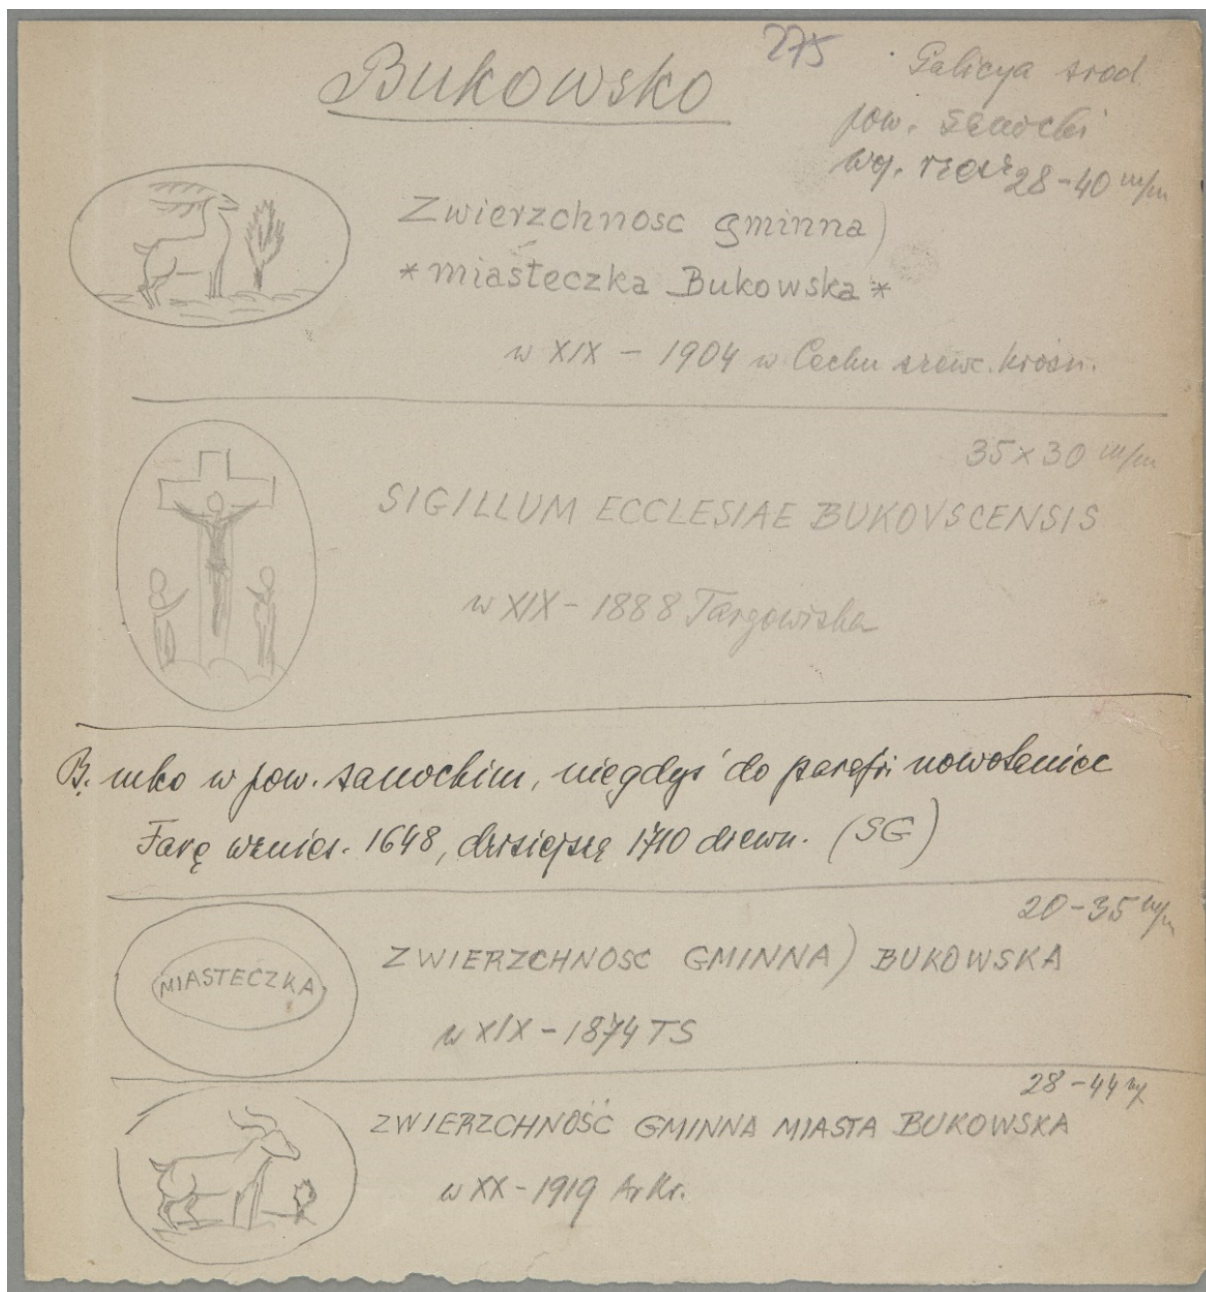 Bukowsko
275
Galicya środ.
pow. sanocki
wg.
28-40 m/m
Zwierzchnosc gminna)
*miasteczka Bukowska*
w XIX - 1904 w Cechu szewc. krośn.
35x30 m/m
SIGILLUM ECCLESIAE BUKOVSCENSIS
w XIX - 1888 Targowiska
B. mko w pow. sanockim, niegdyś do parafji nowotaniec
Farę wznies. 1648, dzisiejszą 1710 drewn. (SG)
20-35 m/m
MIASTECZKA
ZWIERZCHNOSC GMINNA) BUKOWSKA
w XIX - 1874 TS
28-44
ZWIERZCHNOŚĆ GMINNA MIASTA BUKOWSKA
w XX - 1919 ArKr.